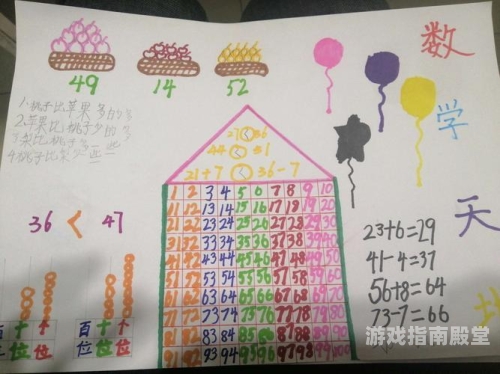 数
学
天
地
49 14 52
1.桃子比苹果多的多
2.苹果比桃子少的多
3.梨比桃子多一些
4.桃子比梨少一些
<36
44<
21+7<36-7
36<47
十 个
位 位 位
百 十 个
位 位 位
1 2 3 4 5 6 7 8 9 10
11 12 13 14 15 16 17 18 19 20
21 22 23 24 25 26 27 28 29 30
31 32 33 34 35 36 37 38 39 40
41 42 43 44 45 46 47 48 49 50
51 52 53 54 55 56 57 58 59 60
61 62 63 64 65 66 67 68 69 70
71 72 73 74 75 76 77 78 79 80
81 82 83 84 85 86 87 88 89 90
91 92 93 94 95 96 97 98 99 100
23+6=29
41-4=37
56+8=64
73-7=66
游戏指南殿堂